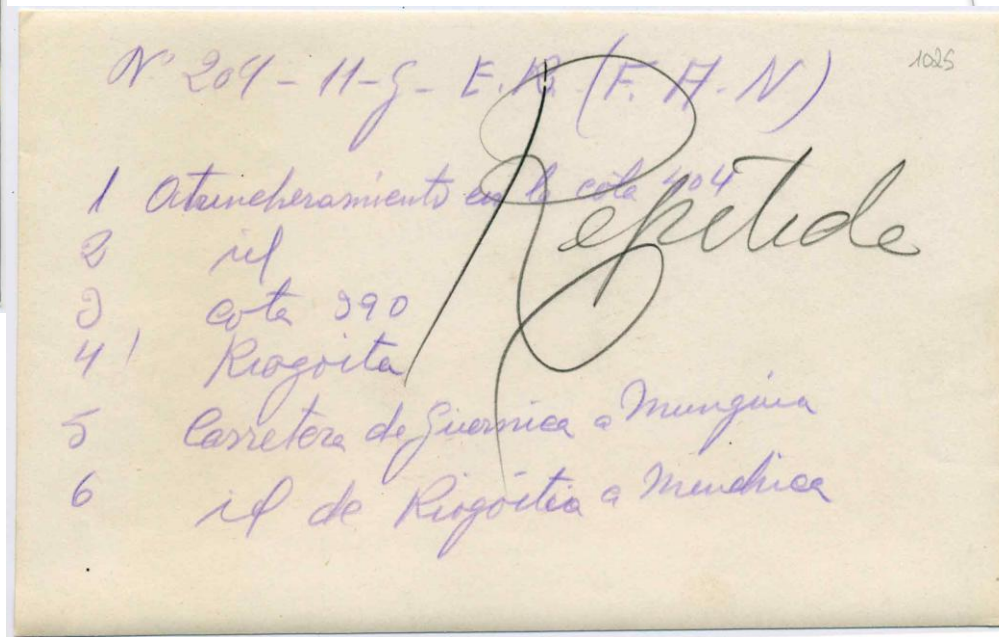 1025
Nº 204-11-G- E.R. (F. A. N)
Repetida
1 Atrincheramiento en la cota 404
2 id
3 cota 390
4 Rigoitia
5 Carretera de Guernica a Munguia
6 id de Rigoitia a Mendica